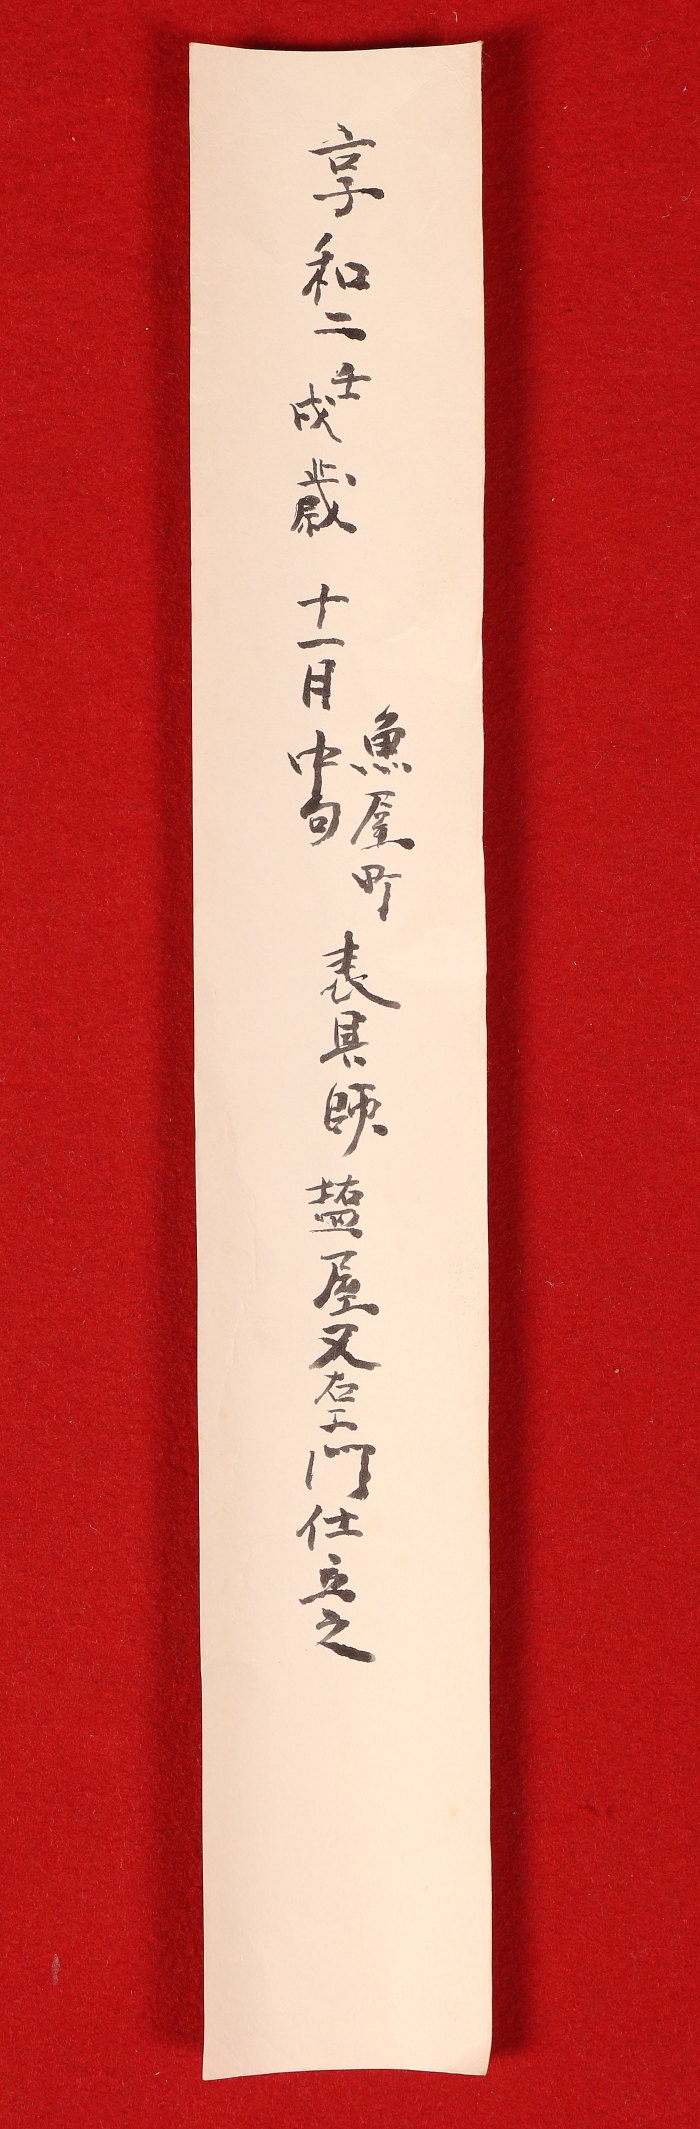 享和二壬戌歳 十一月中旬 魚屋町 表具師 塩屋又右エ門仕立之